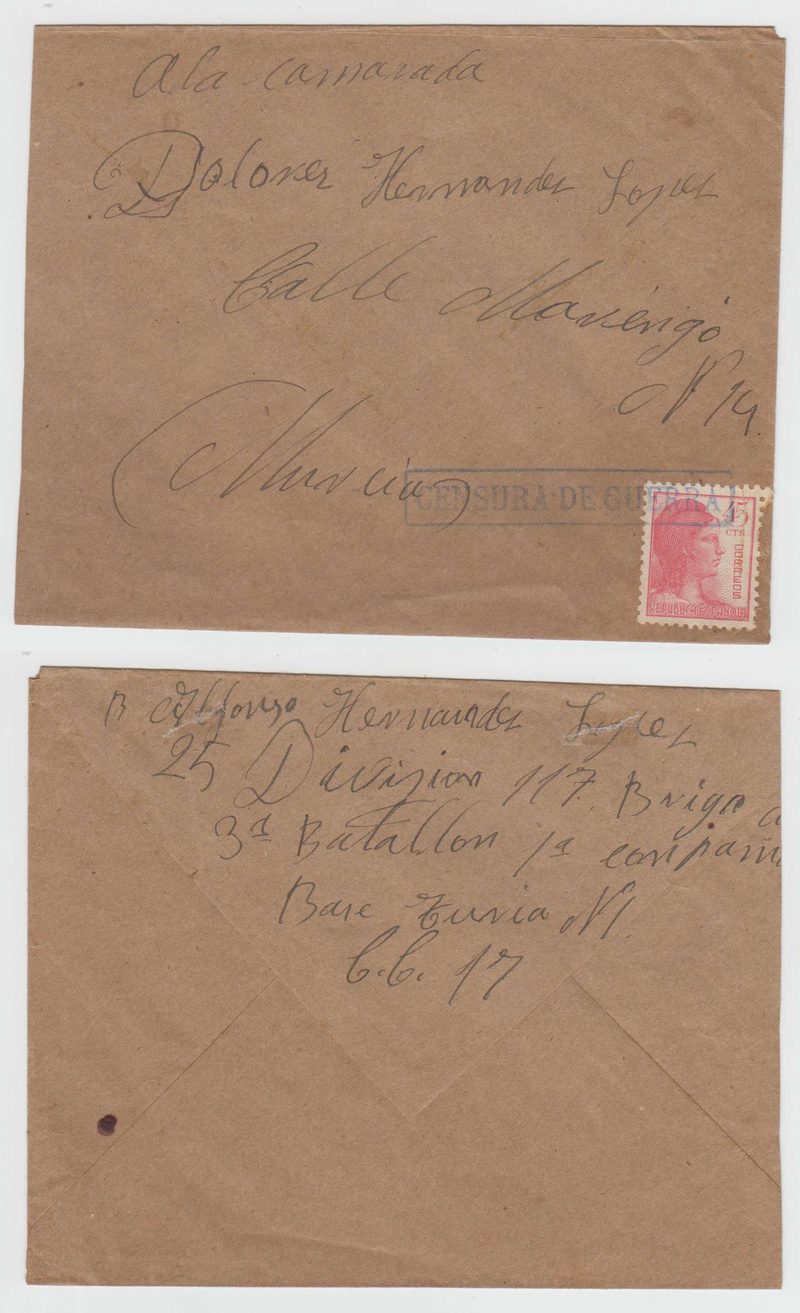 A la camarada
Dolores Hernandez Lopez
Calle Marengo
Nº 14.
Murcia
CENSURA DE GUERRA
45
CTS
CORREOS
REPUBLICA ESPAÑOLA
R Alfonso Hernandez Lopez
25 Division 117 Briga a
3ª Batallon 1ª conpami
Base Turia Nº1
C.C. 17